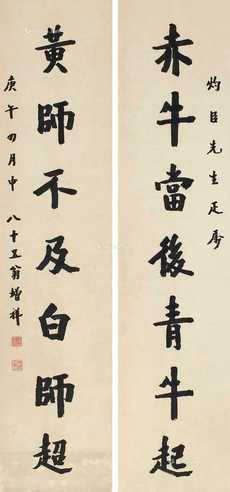 灼臣先生疋屬
赤牛當後青牛起
黃師不及白師超
庚午四月中八十五翁增祥